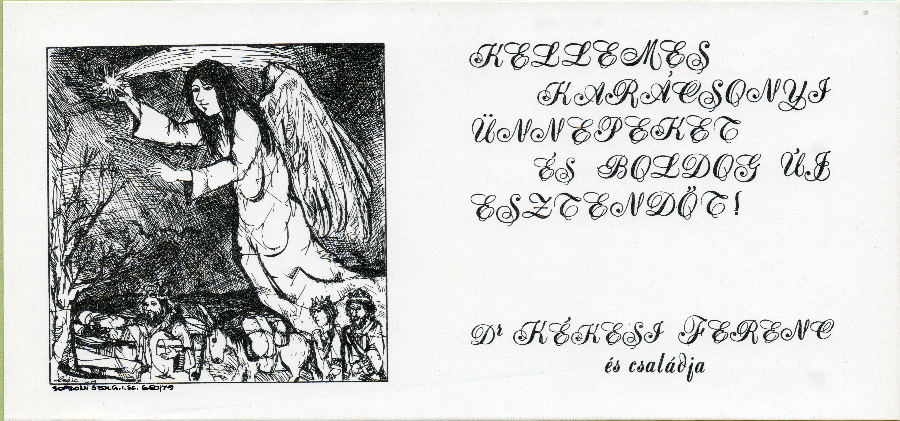 KELLEMES
KARÁCSONYI
ÜNNEPEKET
ÉS BOLDOG ÚJ
ESZTENDŐT!
Dr KÉKESI FERENC
és családja